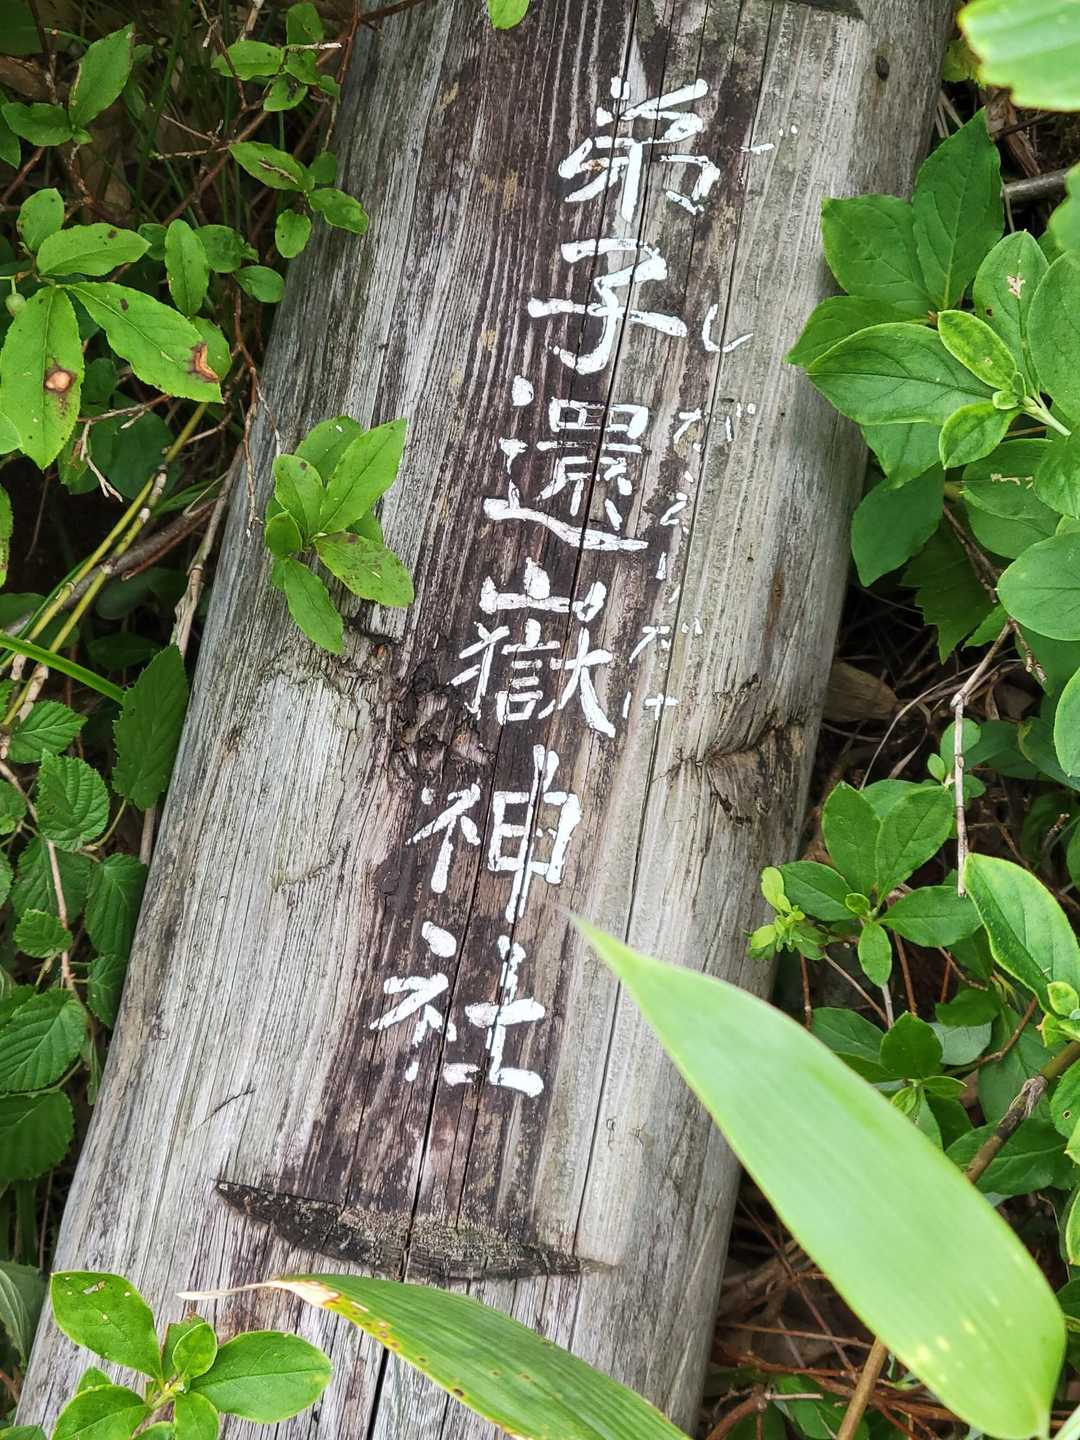 弟子還嶽神社
でしがえりだけ